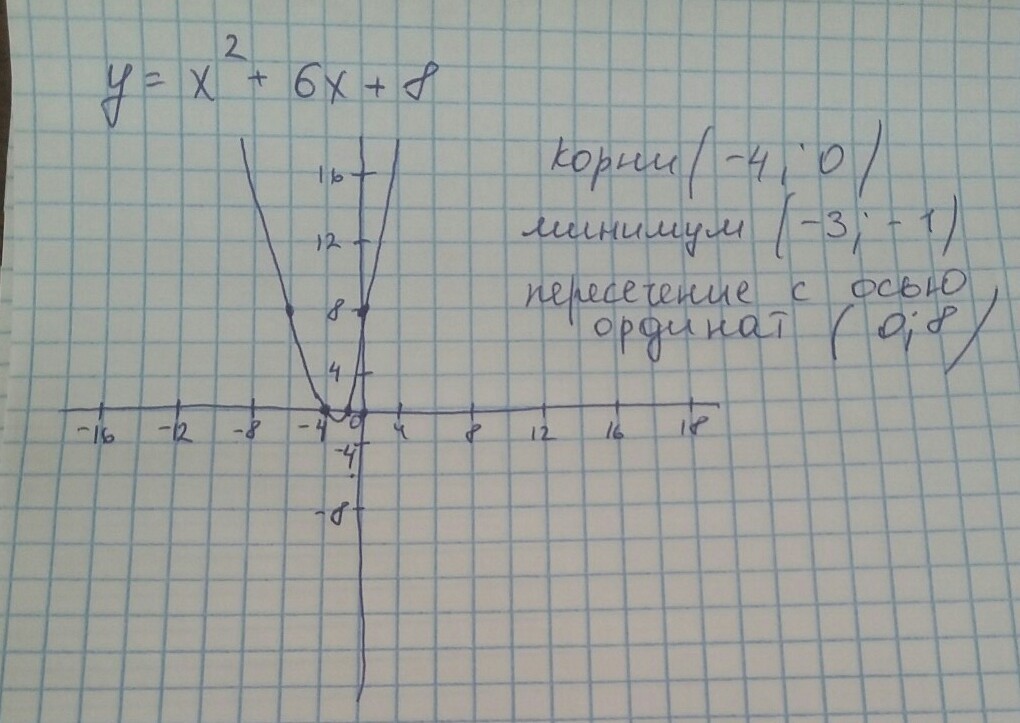 y = x² + 6x + 8
корни (-4; 0)
минимум (-3; -1)
пересечение с осью
ординат (0; 8)
16
12
8
4
-16 -12 -8 -4 0 4 8 12 16 18
-4
-8